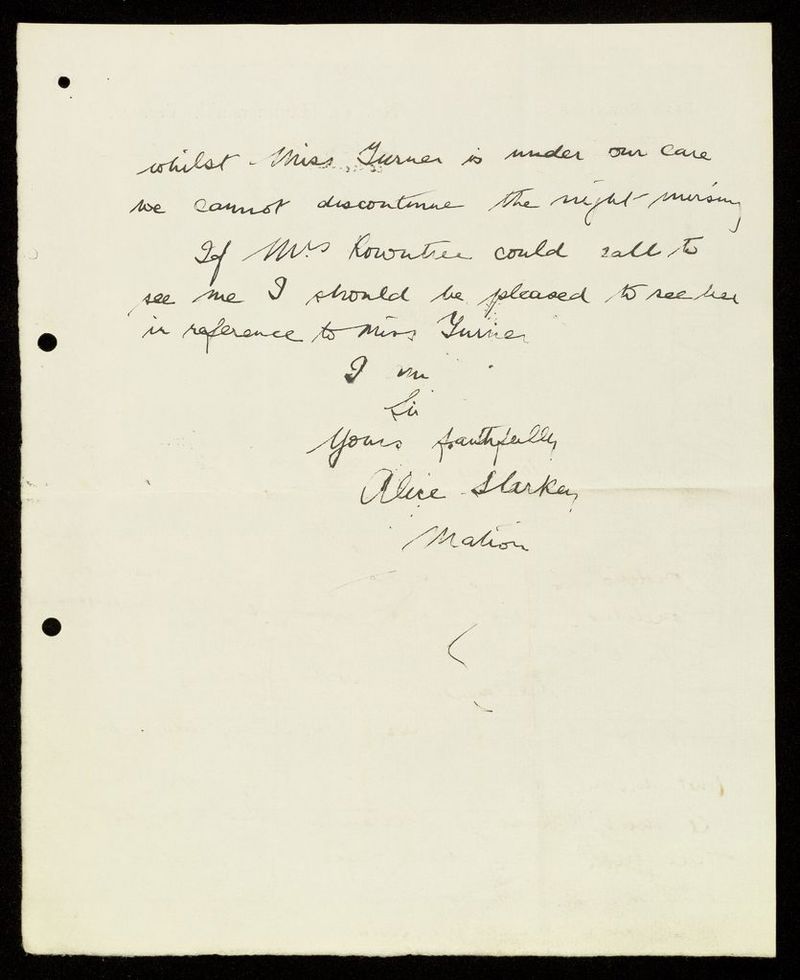 whilst Miss Turner is under our care
we cannot discontinue the night nursing
If Mrs Rowntree could call to
see me I should be pleased to see her
in reference to Miss Turner
I am
Sir
Yours faithfully
Alice Starkey
Matron